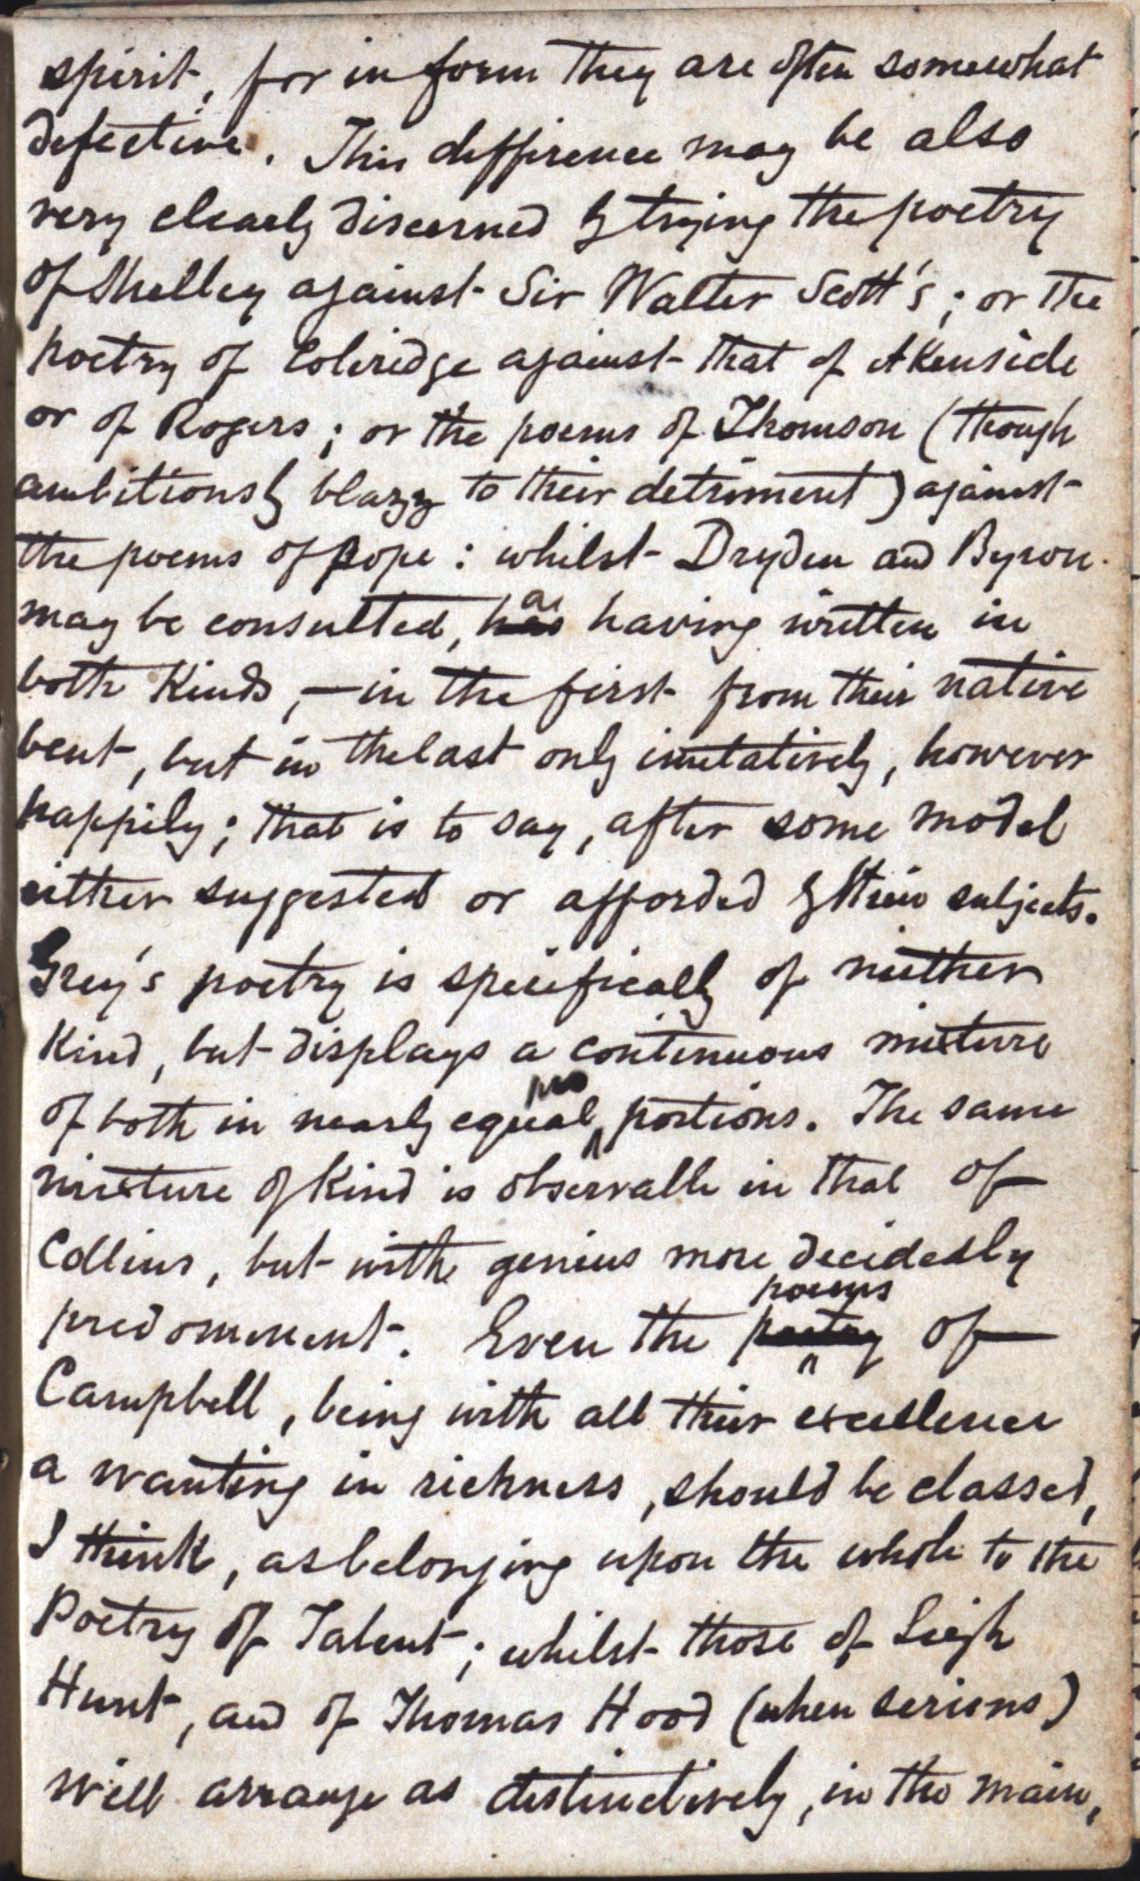 spirit, for in form they are often somewhat
defective. This difference may be also
very clearly discerned by trying the poetry
of Shelley against Sir Walter Scott's; or the
poetry of Coleridge against that of Akenside
or of Rogers; or the poems of Thomson (though
ambitiously blazy to their detriment) against
the poems of Pope: whilst Dryden and Byron
may be consulted, has as having written in
both kinds, — in the first from their native
bent, but in the last only imitatively, however
happily; that is to say, after some model
either suggested or afforded by their subjects.
Grey's poetry is specifically of neither
kind, but displays a continuous mixture
of both in nearly equal proportions. The same
mixture of kind is observable in that of
Collins, but with genius more decidedly
predominent. Even the poetry poems of
Campbell, being with all their excellence
a wanting in richness, should be classed,
I think, as belonging upon the whole to the
Poetry of Talent; whilst those of Leigh
Hunt, and of Thomas Hood (when serious)
will arrange as distinctively, in the main,